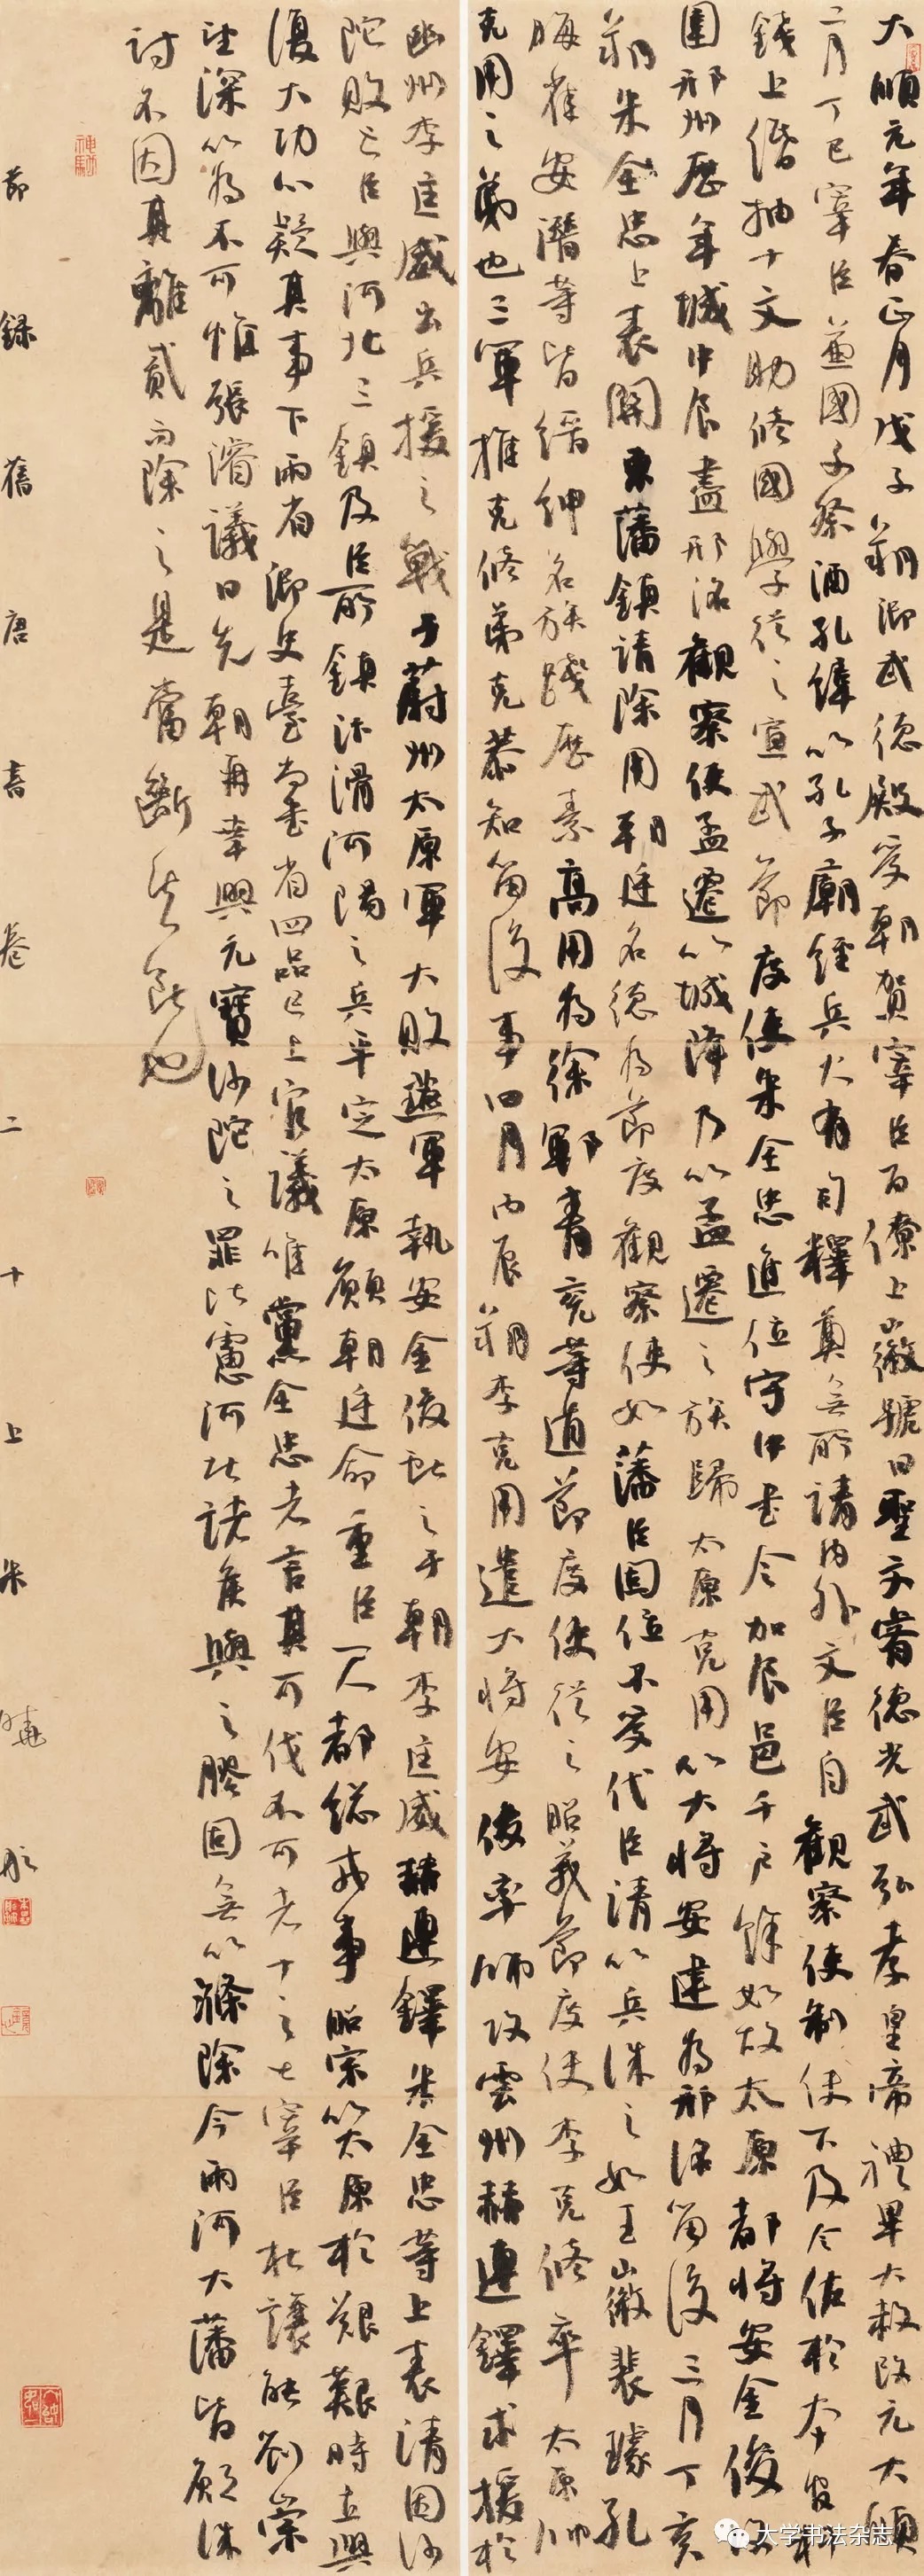 大順元年春正月戊子朔御武德殿受朝賀宰臣百僚上徽號曰聖文睿德光武弘孝皇帝禮畢大赦改元大順
二月丁巳宰臣兼國子祭酒孔緯以孔子廟經兵火有司釋奠無所請內外文臣自觀察使制使下及令佐於本官料
錢上緡抽十文助修國學從之宣武節度使朱全忠進位守中書令加食邑千戶餘如故太原都將安金俊
圍邢州歷年城中食盡邢洺觀察使孟遷以城降乃以孟遷之族歸太原克用以大將安建為邢洺留後三月丁亥
朔朱全忠上表關東藩鎮請除用朝廷名德為節度觀察使如藩臣固位不受代臣請以兵誅之如王徽裴璩孔
晦崔安潛等皆縉紳名族踐歷素高用為徐鄆青兗等道節度使從之昭義節度使李克修卒太原帥
克用之弟也三軍推克修弟克恭知留後事四月丙辰朔李克用遣大將安俊率師攻雲州赫連鐸求援於
幽州李匡威出兵援之戰于蔚州太原軍大敗燕軍執安金俊獻之于朝李匡威赫連鐸朱全忠等上表請因沙
陀敗亡臣與河北三鎮及臣所鎮汴滑河陽之兵平定太原願朝廷命重臣一人都總戎事昭宗以太原於艱難時立興
復大功心疑其事下兩省御史臺尚書省四品已上官議唯黨全忠者言其可伐不可者十之七宰臣杜讓能劉崇
望深以為不可惟張濬議曰先朝再幸興元實沙陀之罪比慮河北諸侯與之膠固無以滌除今兩河大藩皆願誅
討不因其離貳而除之是當斷失斷也
節錄舊唐書卷二十上朱曉航
大学书法杂志